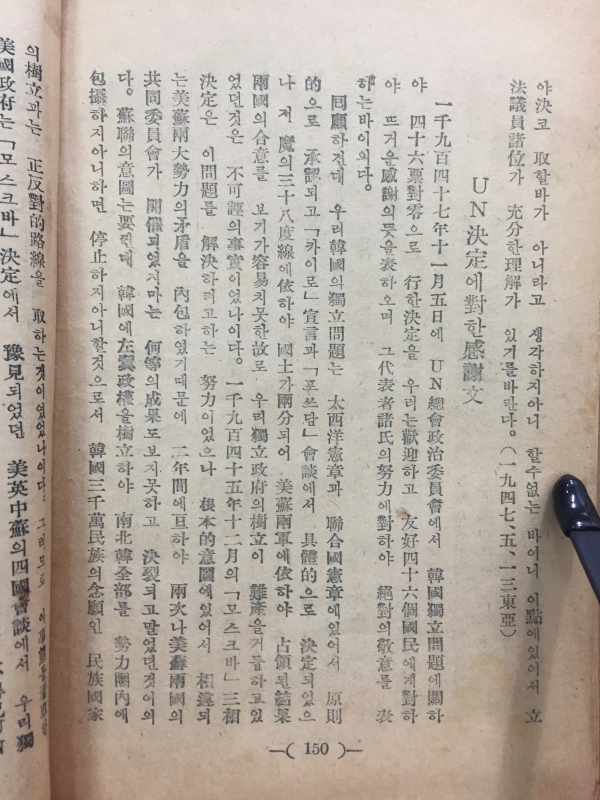 야決코 取할바가 아니라고 생각하지아니 할수없는 바이니 이點에있어서 立
法議員諸位가 充分한理解가 있기를바란다。(一九四七、五、一三東亞)
UN決定에對한感謝文
一千九百四十七年十一月五日에 UN總會政治委員會에서 韓國獨立問題에關하
야 四十六票對零으로 行한決定을 우리는歡迎하고 友好四十六個國民에게對하
야 뜨거운感謝의뜻을表하오며 그代表者諸氏의努力에對하야 絕對의敬意를 表
하는바이외다。
回顧하건데 우리韓國의獨立問題는 太西洋憲章과 聯合國憲章에있어서 原則
的으로 承認되고「카이로」宣言과「포쓰담」會談에서 具體的으로 決定되었으
나 저 魔의三十八度線에依하야 國土가兩分되어 美蘇兩軍에依하야 占領된結果
兩國의合意를 보기가容易치못한故로 우리獨立政府의樹立이 難產을거듭하고있
었던것은 不可諱의事實이었나이다。一千九百四十五年十二月의「모스크바」三相
決定은 이問題를 解決하려고하는 努力이었으나 根本的意圖에있어서 相違되
는美蘇兩大勢力의矛盾을 內包하였기때문에 二年間에亘하야 兩次나美蘇兩國의
共同委員會가 開催되었지마는 何等의成果도보지못하고 決裂되고말었던것이외
다。蘇聯의意圖는要컨대 韓國에左翼政權을樹立하야 南北韓全部를 勢力圈內에
包攝하지아니하면 停止하지아니할것으로서 韓國三千萬民族의念願인 民族國家
의樹立과는 正反對的路線을 取하는것이었었나이다。그러므로
美國政府는「모스크바」決定에서 豫見되었던 美英中蘇의四國會談에서 우리獨